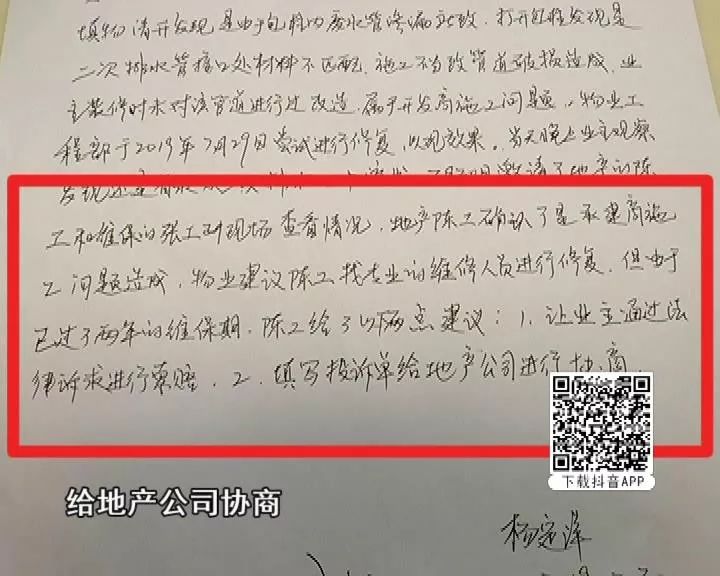 填物清开发现是由于包料内废水管渗漏所致，打开包柱发现是
二次排水管接口处材料不匹配，施工不当致管道破损造成，业
主装修时未对该管道进行过改造，属于开发商施工问题。物业工
程部于2019年7月29日尝试进行修复，以观效果。当天晚上业主观察
发现还
工和维保的张工到现场查看情况，地产陈工确认了是承建商施
工问题造成，物业建议陈工找专业的维修人员进行修复，但由于
已过了两年的维保期，陈工给了以两点建议：1、让业主通过法
律诉求进行索赔，2、填写投诉单给地产公司进行协商。
下载抖音APP
给地产公司协商